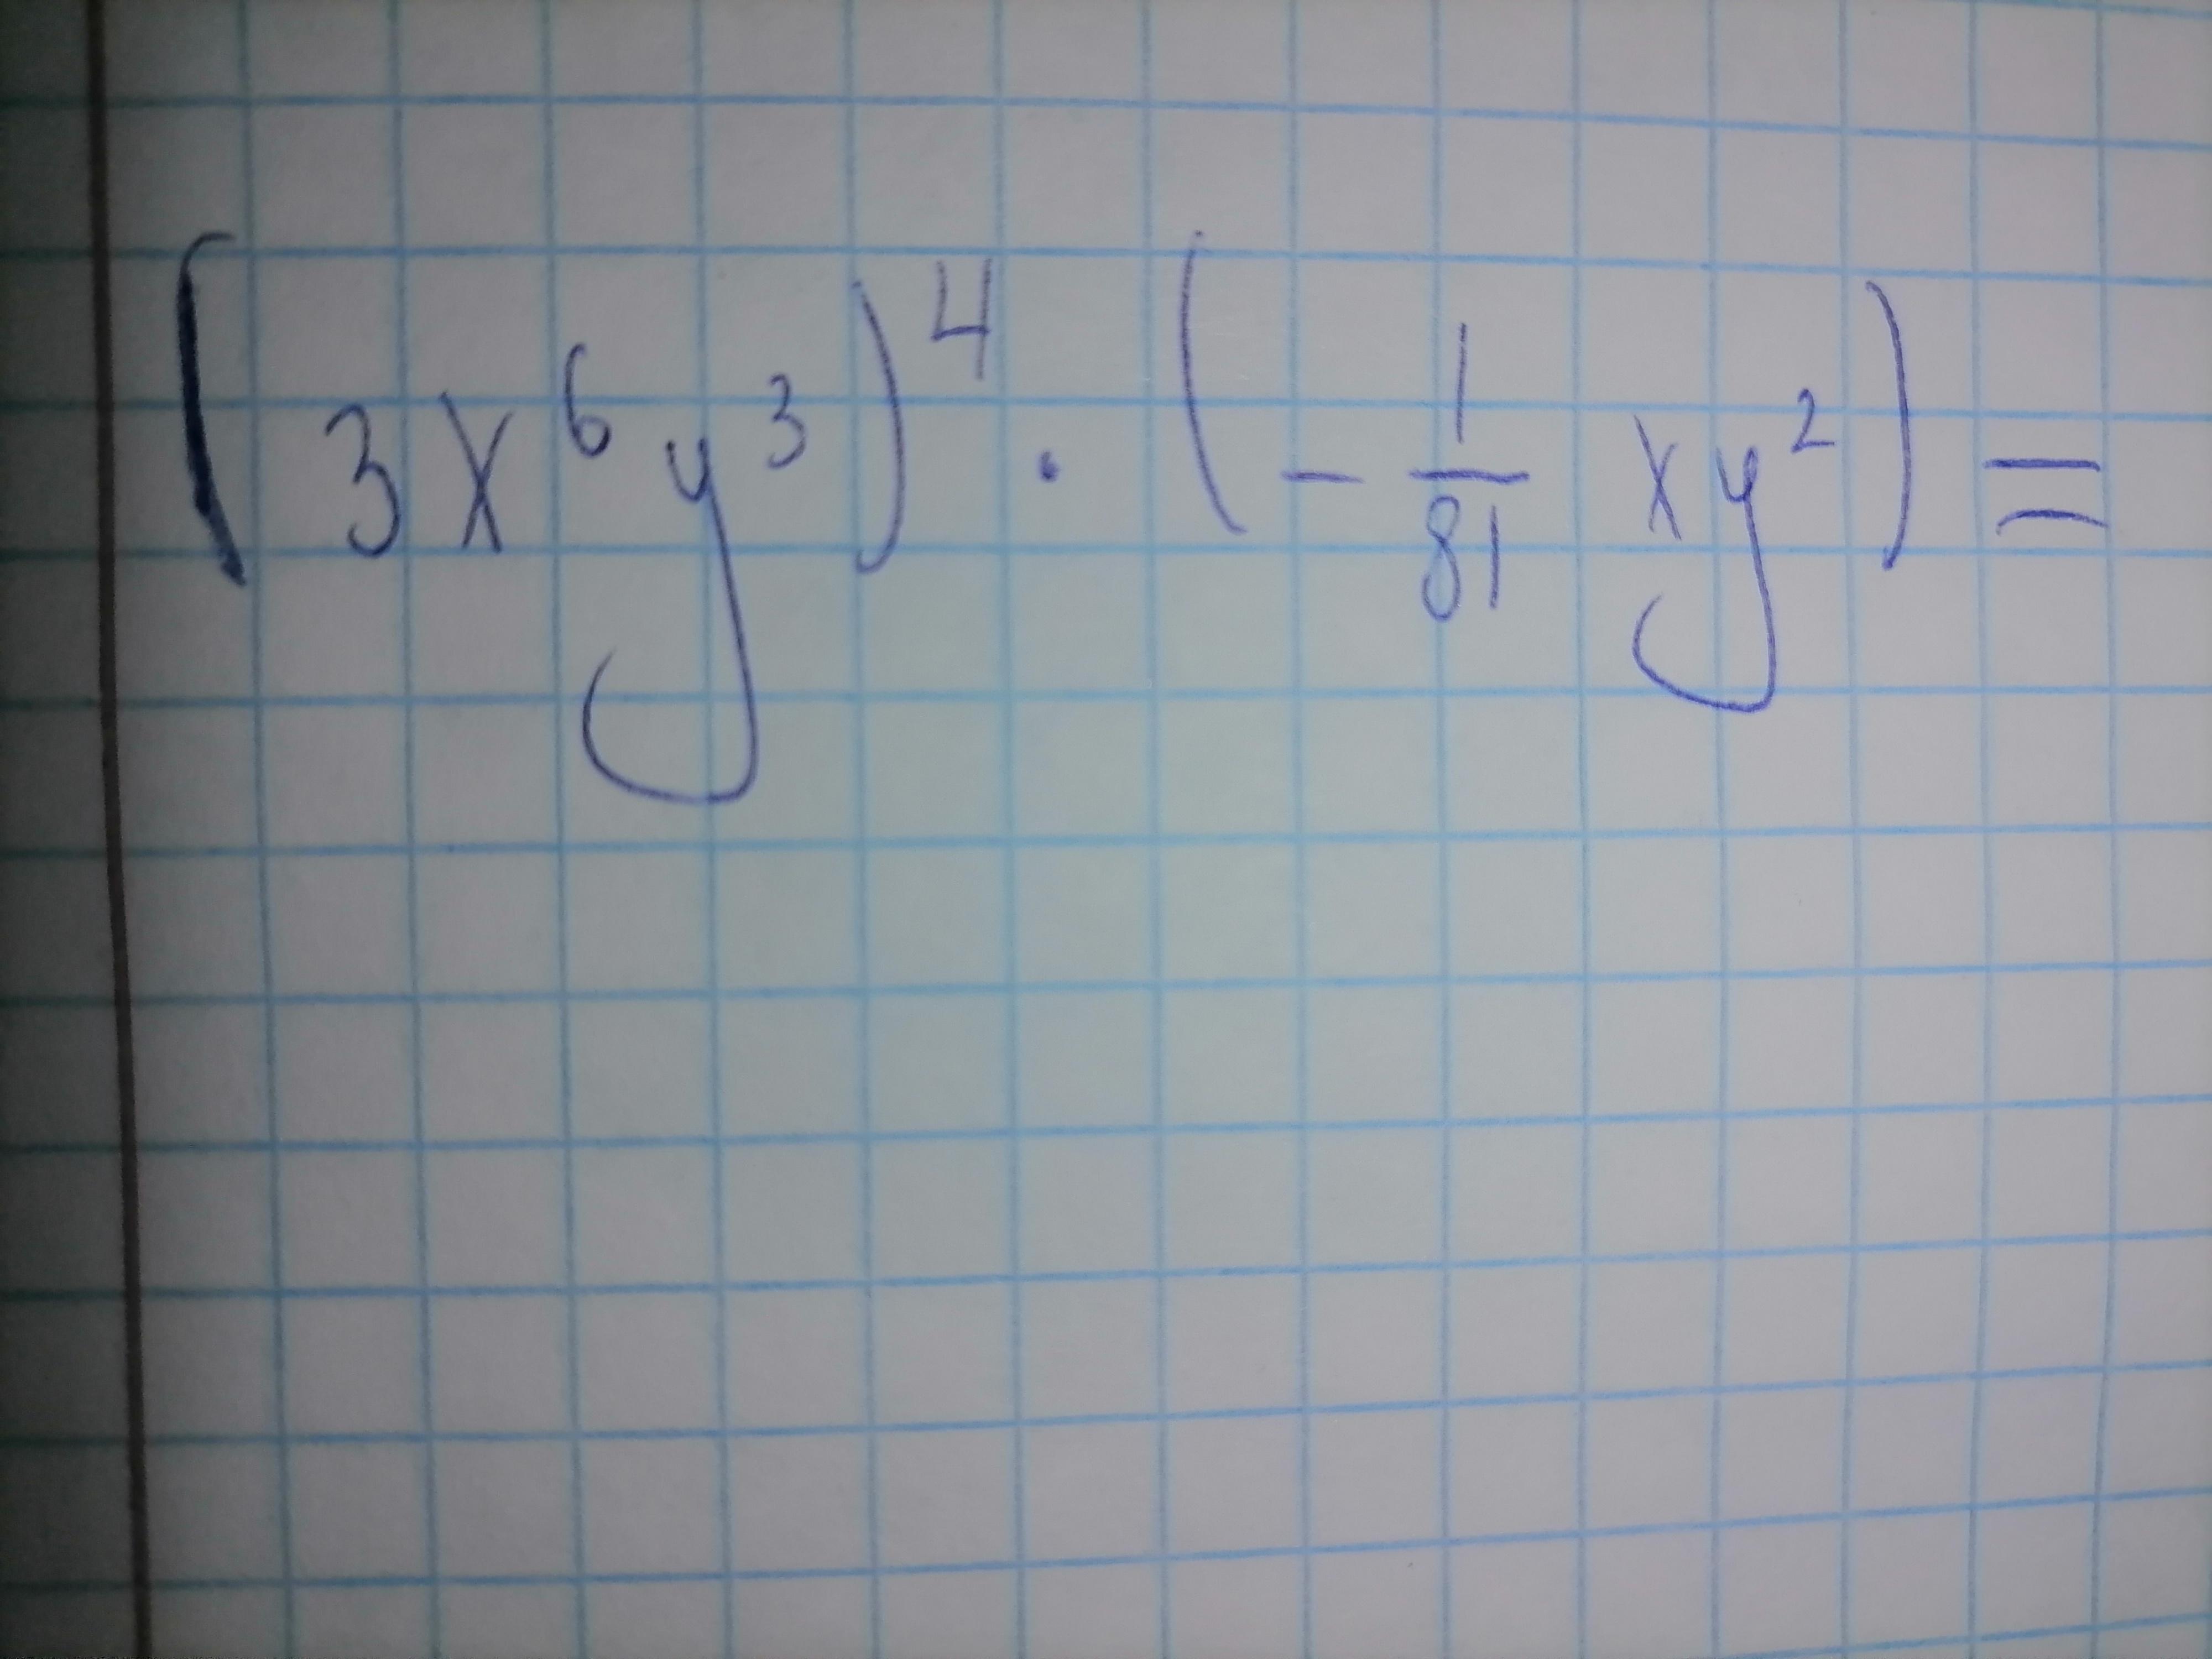 (3x⁶y³)⁴ · (- 1/81 xy²) =